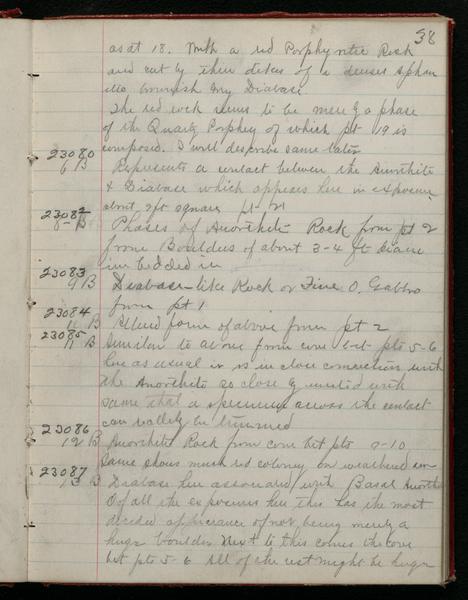 38
as at 18. With a red Porphyritic Rock
and cut by thin dikes of a denser Aphan
itic brownish Gry Diabase
The red rock seems to be merely a phase
of the Quartz Porphry of which pt 19 is
composed. I will describe same later
23080 Represents a contact between the Anorthite
6 B & Diabase which appears here in exposure
about 2 ft square pt 21
23082 Phases of Anorthite Rock from pt 2
8 B from Boulders of about 3-4 ft diam
imbedded in
23083 Diabase-like Rock or Fine O. Gabbro
9 B from pt 1
23084 Altered form of above from pt 2
B
23085 Similar to above from cove bet pts 5-6
11 B here as usual it is in close connection with
the Anorthite so close & united with
same that a specimen across the contact
can be trimmed
23086 Anorthite Rock from cove bet pts 9-10
12 B Same shows much red coloring on weathered
23087 Diabase here associated with Basal Anorth
13 B Of all the exposures here this has the most
decided appearance of not being merely a
huge boulder Next to this comes the cove
bet pts 5-6 All of the rest might be huge